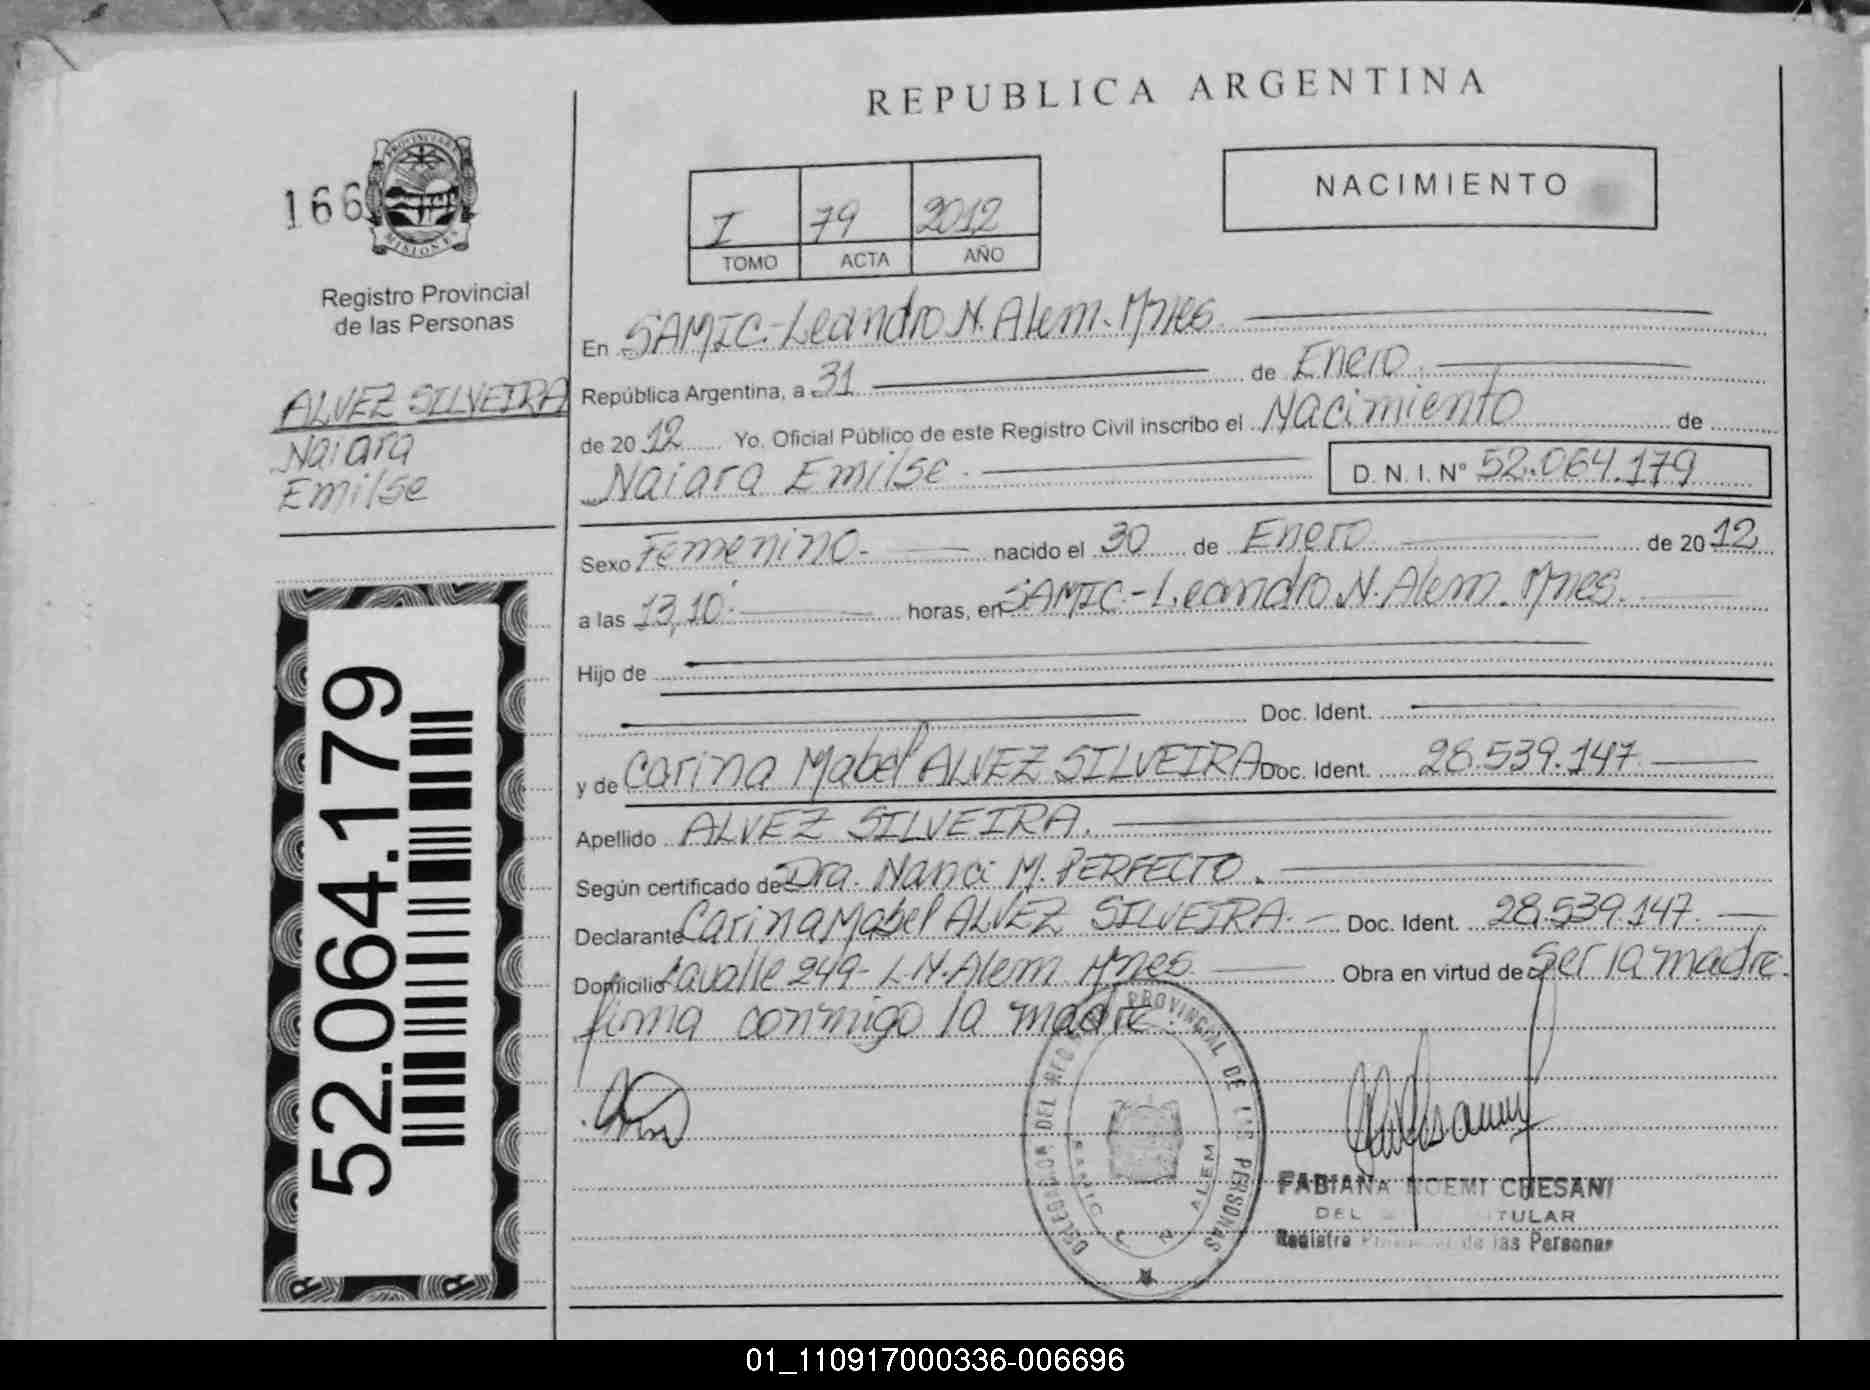 REPUBLICA ARGENTINA
NACIMIENTO
166
PROVINCIA DE
MISIONES
Registro Provincial
de las Personas
I 79 2012
TOMO ACTA AÑO
ALVEZ SILVEIRA
Naiara
Emilse
52.064.179
En SAMIC-Leandro N. Alem. Mnes.
República Argentina, a 31 de Enero
de 2012 Yo. Oficial Público de este Registro Civil inscribo el Nacimiento de
Naiara Emilse. D. N. I. N° 52.064.179
Sexo Femenino. nacido el 30 de Enero de 2012
a las 13,10. horas, en SAMIC-Leandro N. Alem. Mnes.
Hijo de
Doc. Ident.
y de Carina Mabel ALVEZ SILVEIRA Doc. Ident. 28.539.147
Apellido ALVEZ SILVEIRA.
Según certificado de Dra. Nanci M. PERFECTO.
Declarante Carina Mabel ALVEZ SILVEIRA. Doc. Ident. 28.539.147.
Domicilio Lavalle 249- L.N.Alem Mnes. Obra en virtud de Ser la madre.
firma conmigo la madre.
DELEGACION DEL REG PROVINCIAL DE LAS PERSONAS
SAMIC L N ALEM
FABIANA NOEMI CHESANI
DEL TITULAR
Registro Provincial de las Personas
01_110917000336-006696